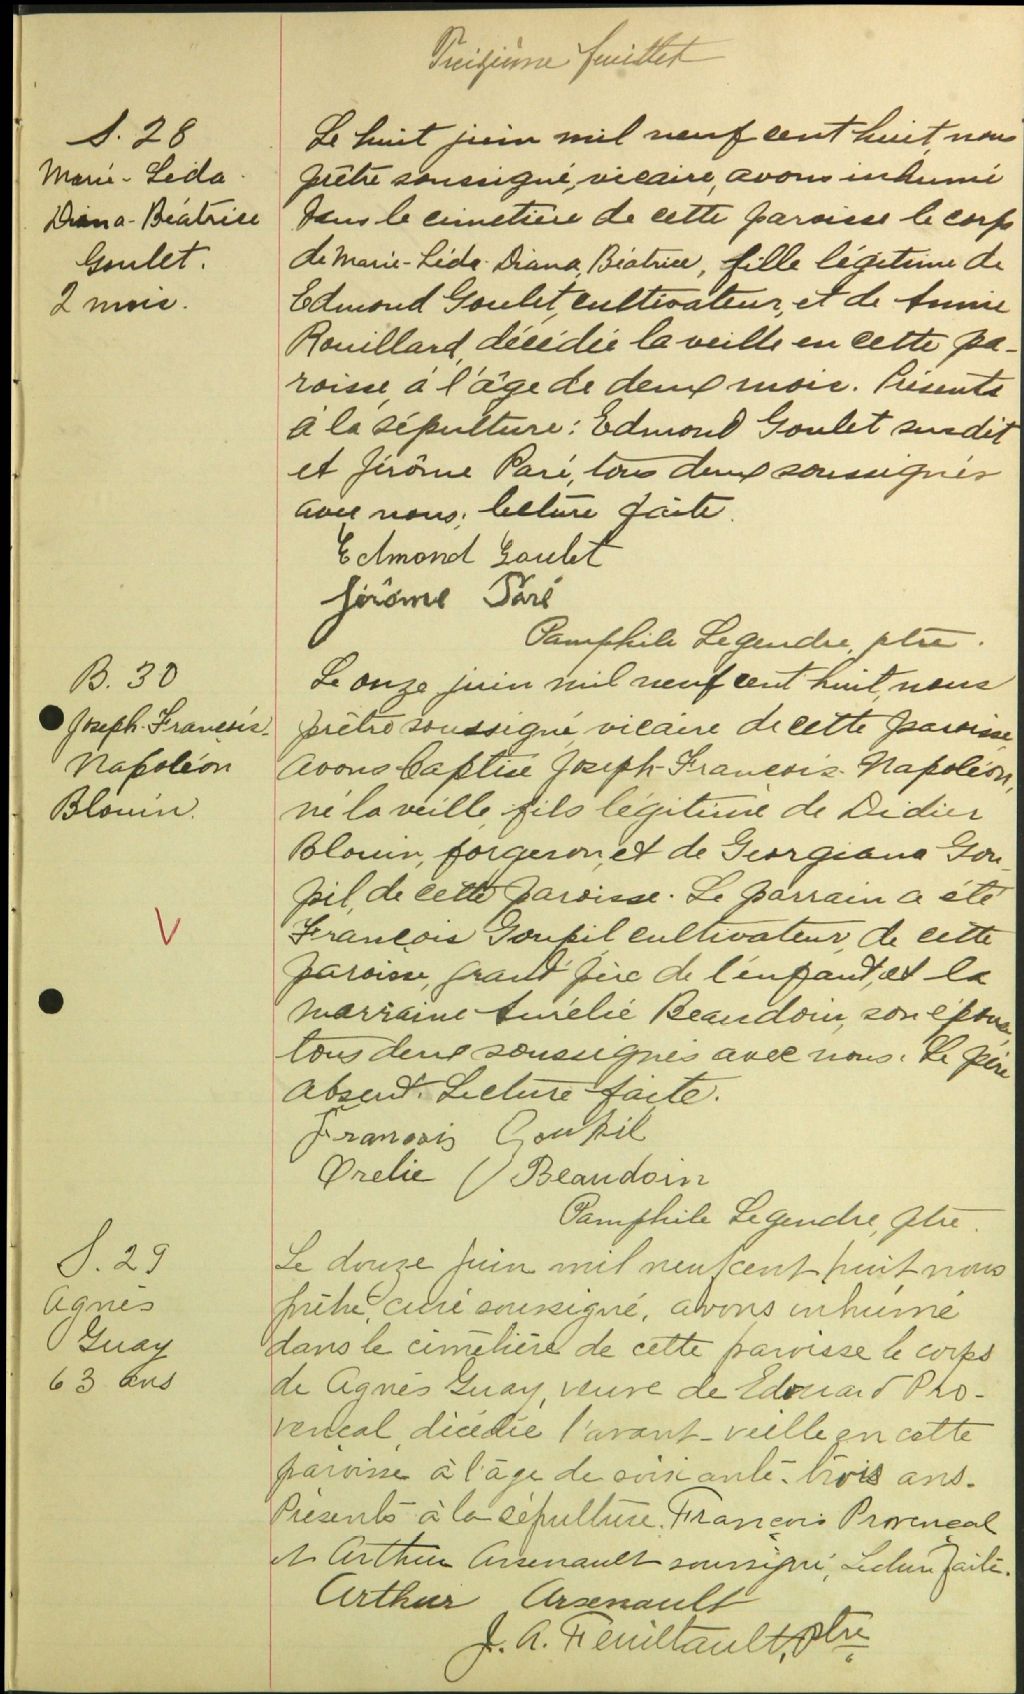 Treizième feuillet
S. 28
Marie-Léda-
Diana-Béatrice
Goulet.
2 mois.
Le huit juin mil neuf cent huit, nous
prêtre soussigné, vicaire, avons inhumé
dans le cimetière de cette paroisse le corps
de Marie-Léda-Diana, Béatrice, fille légitime de
Edmond Goulet, cultivateur, et de Annie
Rouillard, décédée la veille en cette pa-
roisse, à l'âge de deux mois. Présents
à la sépulture: Edmond Goulet susdit
et Jérôme Paré, tous deux soussignés
avec nous; lecture faite.
Edmond Goulet
Jérôme Paré
Pamphile Legendre, ptre.
B. 30
Joseph-François-
Napoléon
Blouin.
Le onze juin mil neuf cent huit, nous
prêtre soussigné vicaire de cette paroisse
avons baptisé Joseph-François-Napoléon,
né la veille, fils légitime de Didier
Blouin, forgeron, et de Georgiana Gou-
pil, de cette paroisse. Le parrain a été
François Goupil cultivateur, de cette
paroisse, grand'père de l'enfant, et la
marraine Aurélie Beaudoin, son épouse
tous deux soussignés avec nous. Le père
absent. Lecture faite.
François Goupil
Orelie Beaudoin
Pamphile Legendre, ptre.
V
S. 29
Agnès
Guay
63 ans
Le douze juin mil neuf cent huit nous
prêtre, curé soussigné, avons inhumé
dans le cimetière de cette paroisse le corps
de Agnès Guay, veuve de Edouard Pro-
vençal, décédée l'avant-veille en cette
paroisse à l'âge de soixante-trois ans.
Présents à la sépulture. François Provençal
et Arthur Arsenault soussigné, Lecture faite.
Arthur Arsenault
J. A. Feuiltault, Ptre